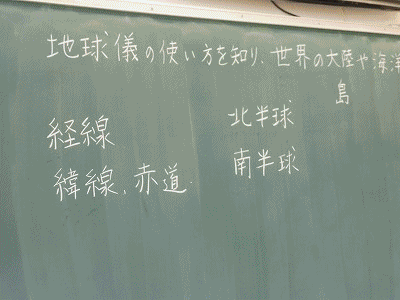 地球儀の使い方を知り、世界の大陸や海洋
島
経線
緯線、赤道
北半球
南半球